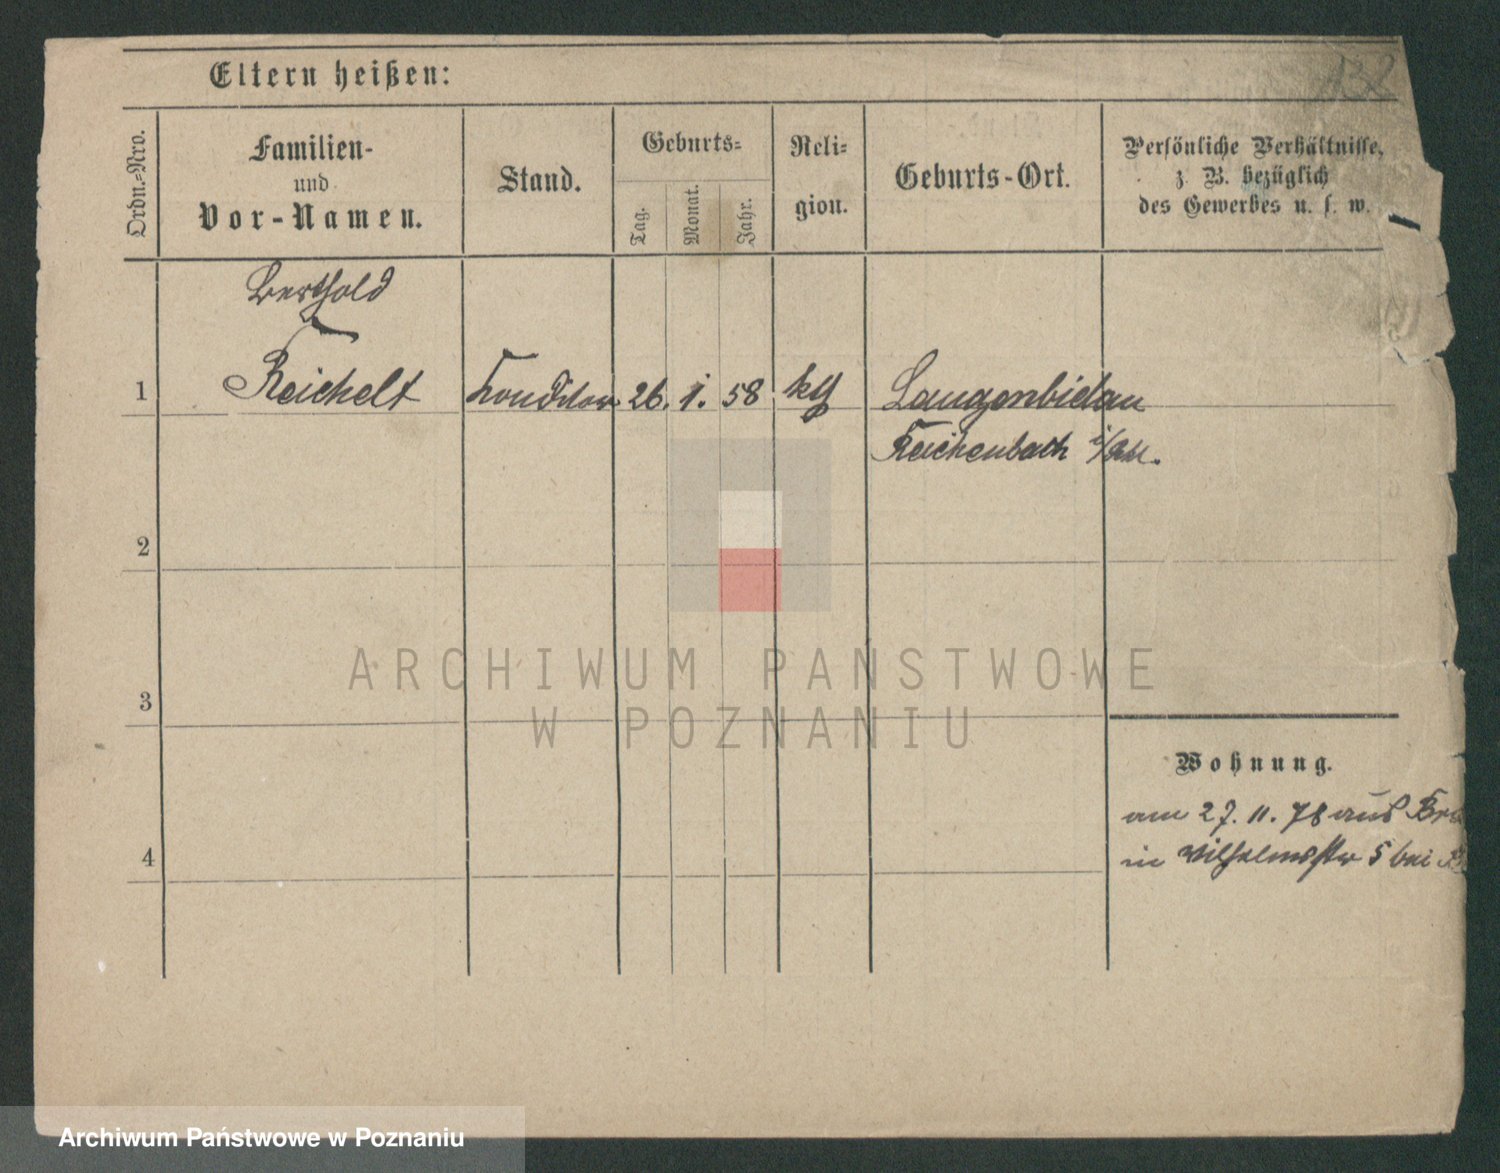 132
Eltern heißen:
Ordn.-Nro.
Familien-
und
Vor-Namen.
Stand.
Geburts-
Tag.
Monat.
Jahr.
Reli-
gion.
Geburts-Ort.
Persönliche Verhältnisse,
z. B. bezüglich
des Gewerbes u. s. w.
Berthold
1 Reichelt Konditor 26. 1. 58 kth Langenbielau
Reichenbach i/Schl.
2
3
4
Wohnung.
am 27. 11. 78 aus
in Wilhelmsstr 5 bei
ARCHIWUM PAŃSTWOWE
W POZNANIU
Archiwum Państwowe w Poznaniu